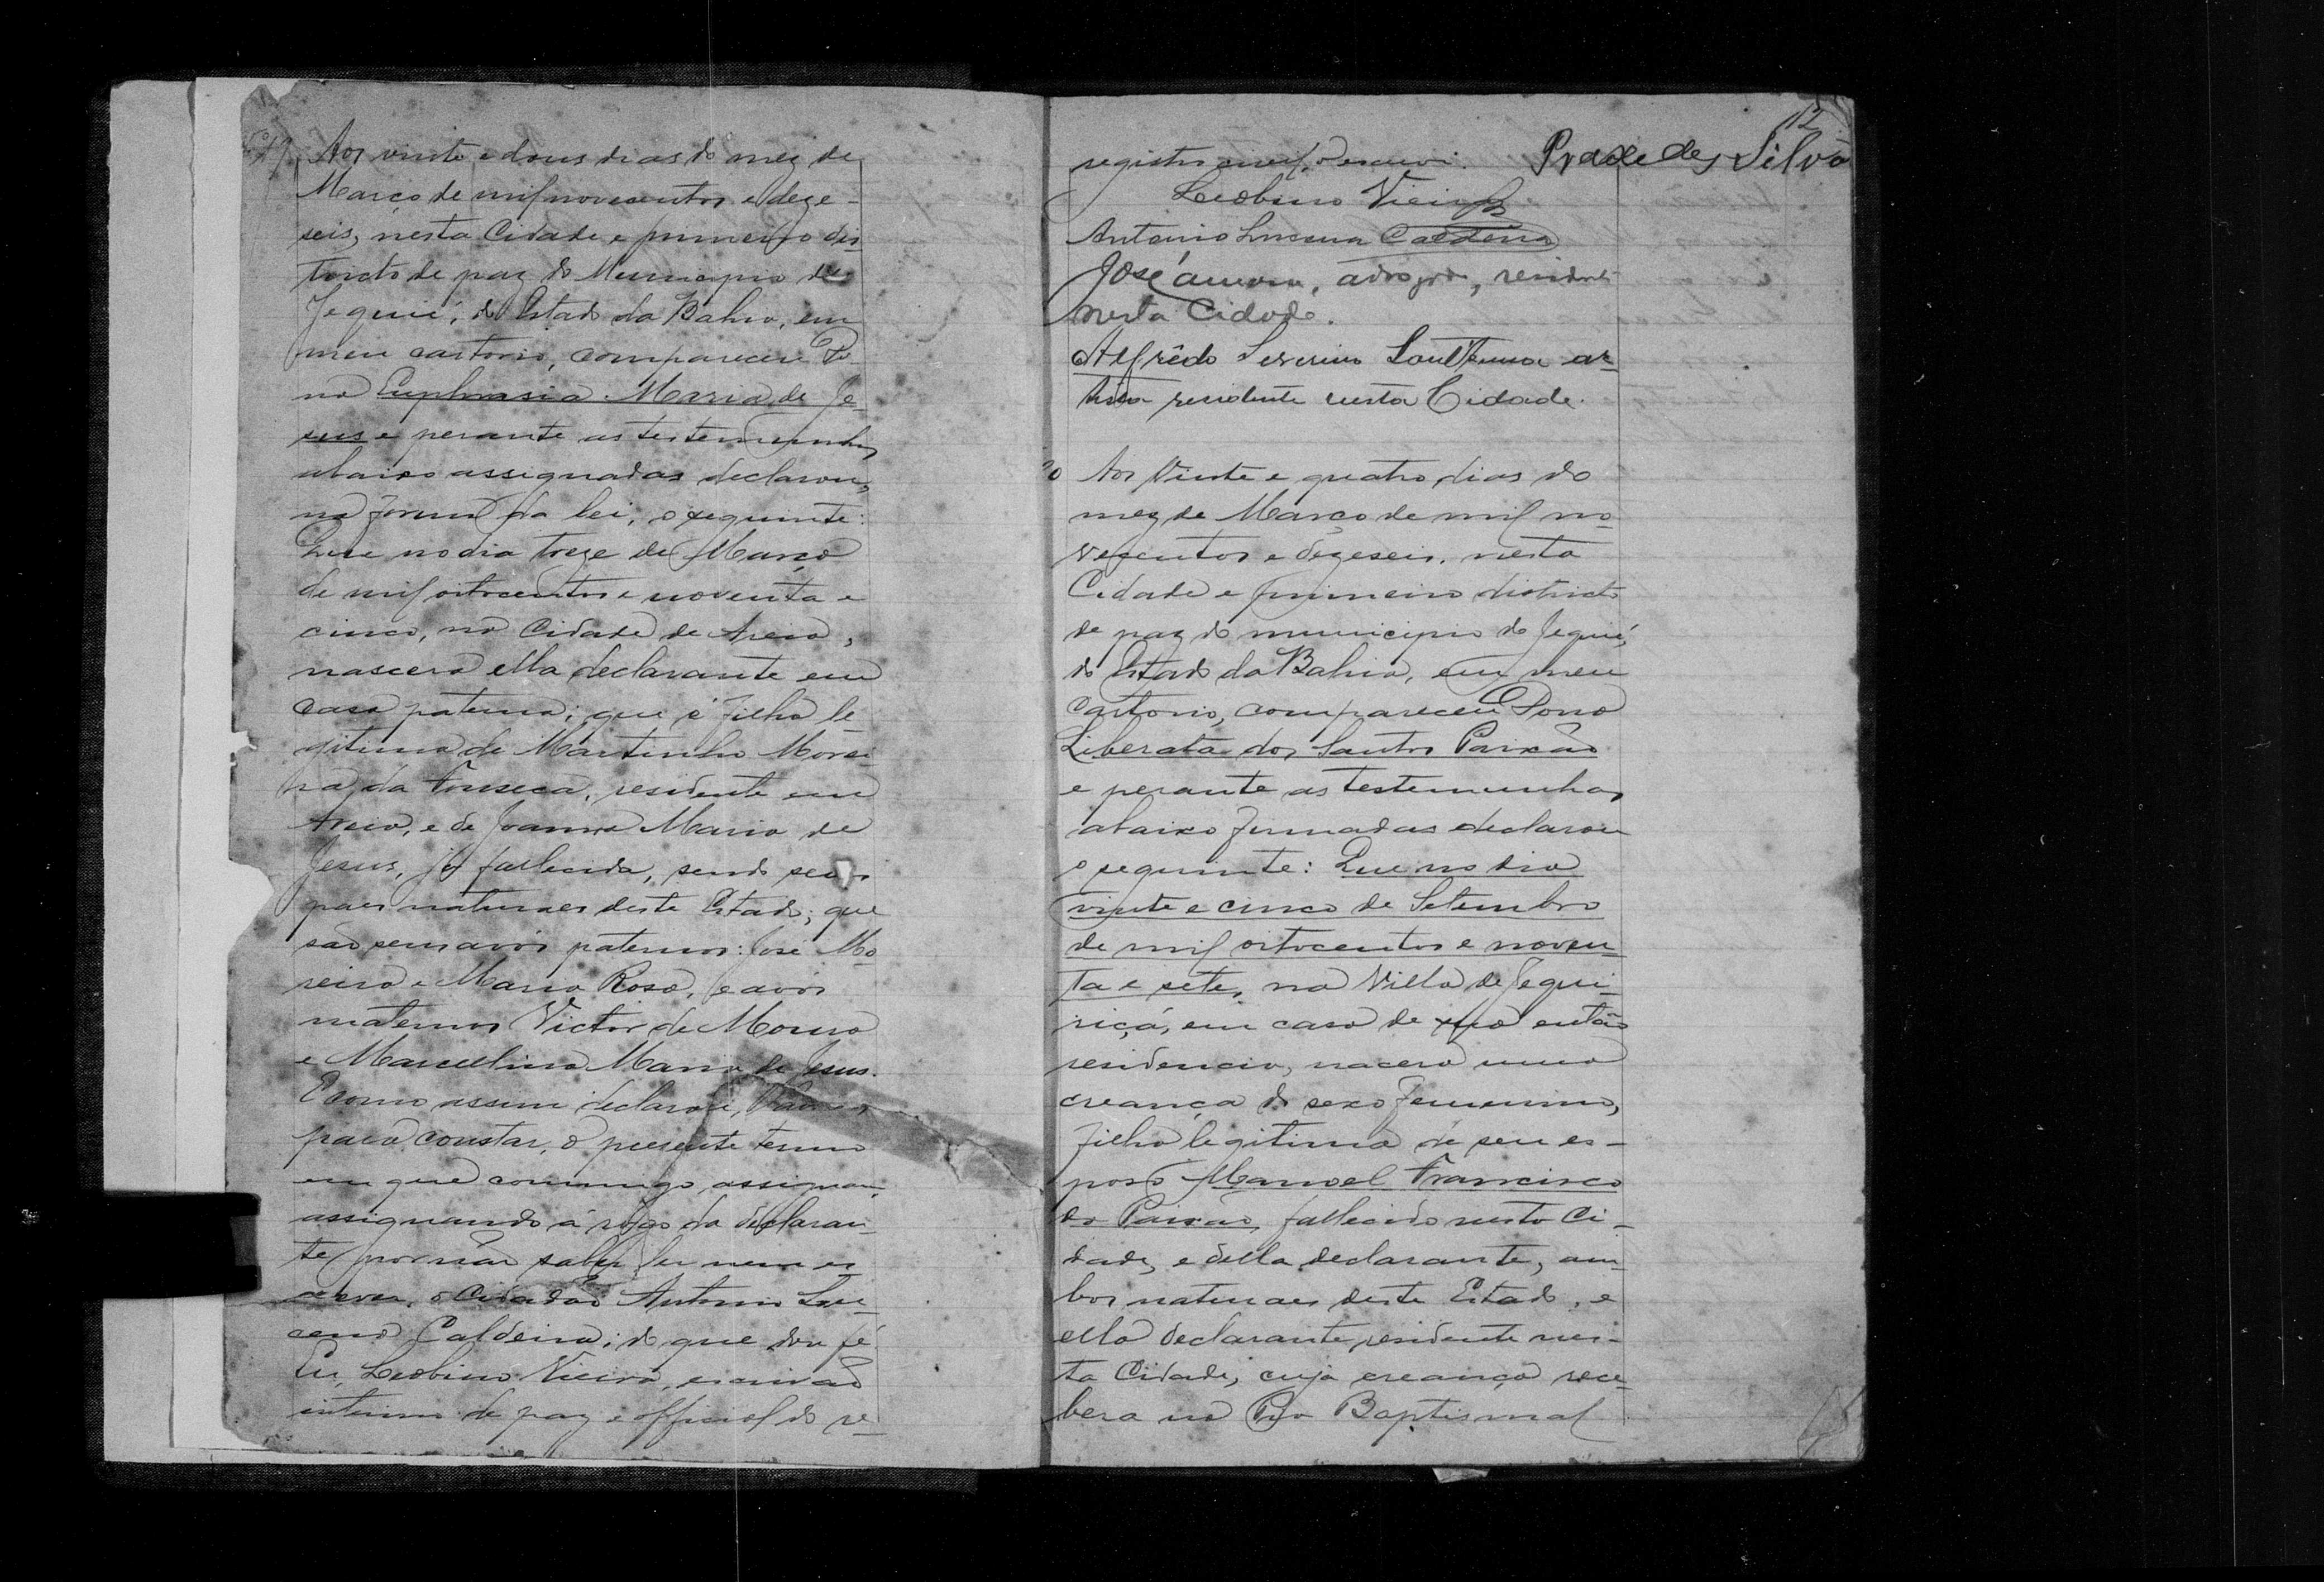 Aos vinte e dous dias do mez de
Março de mil novecentos e deze-
seis, nesta Cidade e primeiro dis
tricto de paz do Municipio de
Jequié, do Estado da Bahia, em
meu cartorio, compareceu Do-
na Euphrasia Maria de Je-
sus e perante as testemunhas
abaixo assignadas declarou,
na forma da lei, o seguinte:
Que no dia treze de Março
de mil oitocentos e noventa e
cinco, na Cidade de Areia,
nascera ella declarante em
casa paterna; que é filha le-
gitima de Martinho Morei-
ra da Fonseca, residente em
Areia, e de Joanna Maria de
Jesus, já fallecida, sendo seus
paes naturaes deste Estado; que
são seus avós paternos: José Mo-
reira e Maria Rosa, e avós
maternos Victor de Moura
e Marcellina Maria de Jesus.
E como assim declarou, lavrei,
para constar, o presente termo
em que commigo assignam,
assignando á rôgo da declaran-
te, por não saber ler nem es
crever, o Cidadão Antonio Lu
cena Caldeira; do que dou fé.
Eu, Leobino Vieira, escrivão
interino de paz e official do re-
12
Praxedes Silva
registro civil, o escrevi.
Leobino Vieira
Antonio Lucena Caldeira
José, advogado, residente
nesta Cidade.
Alfrêdo Severino ar-
tista residente nesta Cidade.
Aos Vinte e quatro dias do
mez de Março de mil no-
vecentos e dezeseis, nesta
Cidade e primeiro districto
de paz do municipio de Jequié,
do Estado da Bahia, em meu
cartorio, compareceu Dona
Liberata dos Santos Paixão
e perante as testemunhas
abaixo firmadas declarou
o seguinte: Que no dia
vinte e cinco de Setembro
de mil oitocentos e noven-
ta e sete, na Villa de Jequi-
riçá, em casa de sua então
residencia, nacera uma
creança do sexo femenino,
filha legitima de seu es-
poso Manoel Francisco
da Paixão, fallecido nesta Ci-
dade, e della declarante, am-
bos naturaes deste Estado, e
ella declarante residente nes-
ta Cidade, cuja creança rece-
bera na Pia Baptismal